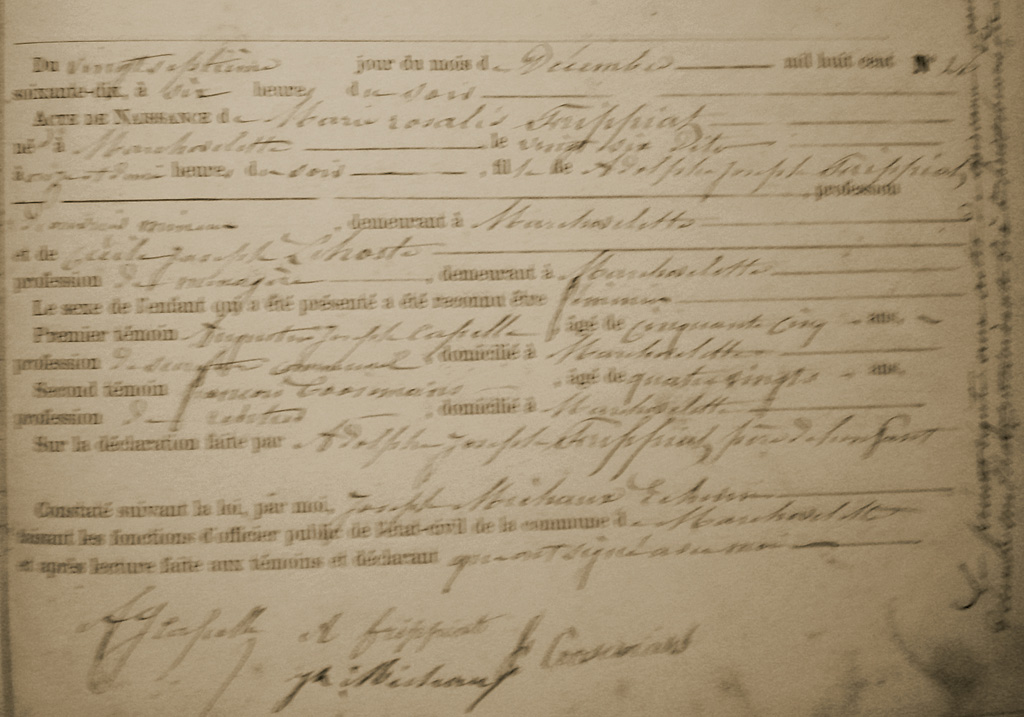 Du vingt septième jour du mois de Décembre mil huit cent N°
soixante-dix, à six heures du soir
ACTE DE NAISSANCE de Marie rosalie Frippiat
né à Marchovelette le vingt six Dito
heures du soir, fille de Adolphe Joseph Frippiat,
profession
demeurant à Marchovelette
et de Cécile Joseph Lhoste
profession de ménagère, demeurant à Marchovelette
Le sexe de l'enfant qui a été présenté a été reconnu être féminin
Premier témoin Auguste Joseph Capelle, âgé de cinquante cinq ans,
profession de secrétaire communal, domicilié à Marchovelette
Second témoin françois Coosemans, âgé de quatre vingts ans,
profession de, domicilié à Marchovelette
Sur la déclaration faite par Adolphe Joseph Frippiat, père de l'enfant
Constaté suivant la loi, par moi, Joseph Michaux Echevin
faisant les fonctions d'officier public de l'état-civil de la commune de Marchovelette
et après lecture faite aux témoins et déclarant qui ont signé avec moi
A J Capelle A frippiat
f Coosemans
jh Michaux